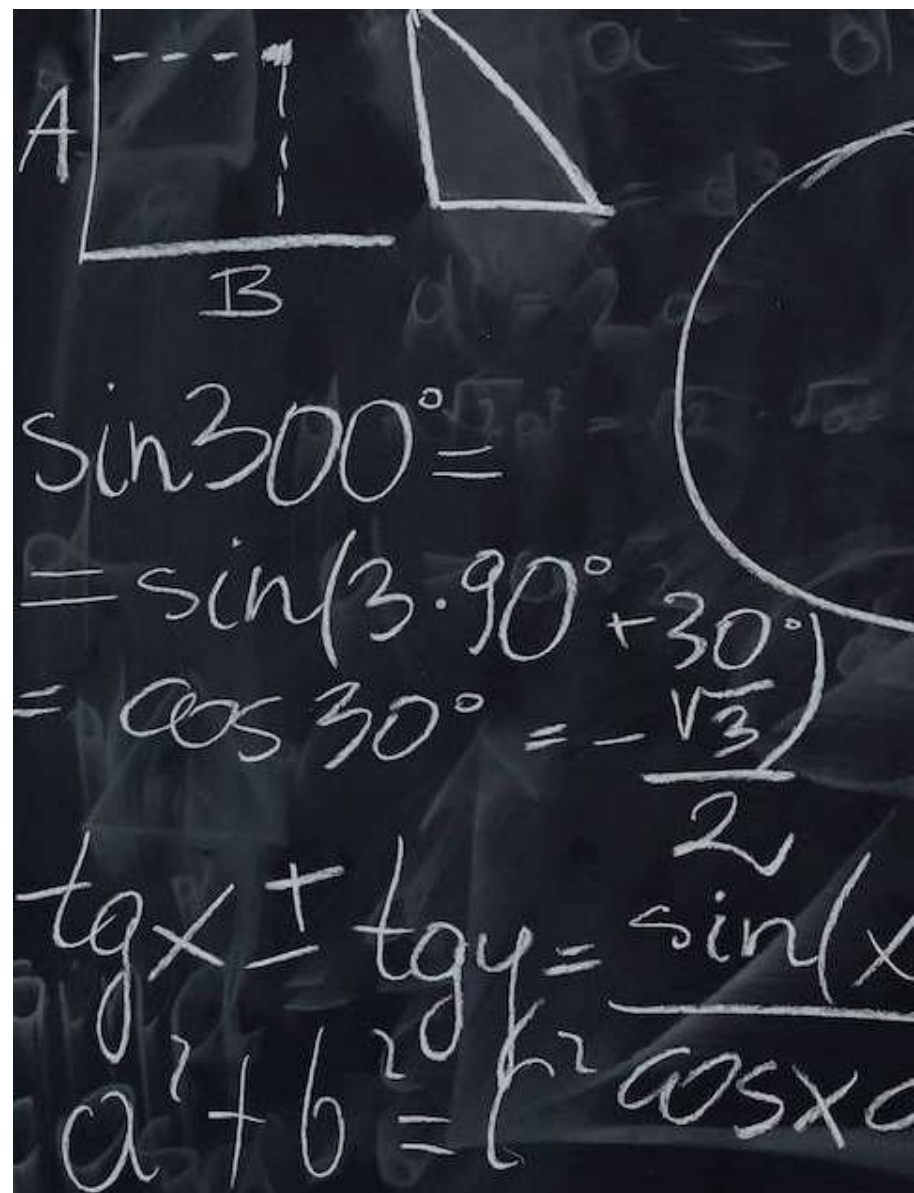 A
B
sin300°=
=sin(3·90°+30°)
= cos 30° = -√3/2
tgx ± tgy = sin(x
cosx
a²+b²=c²